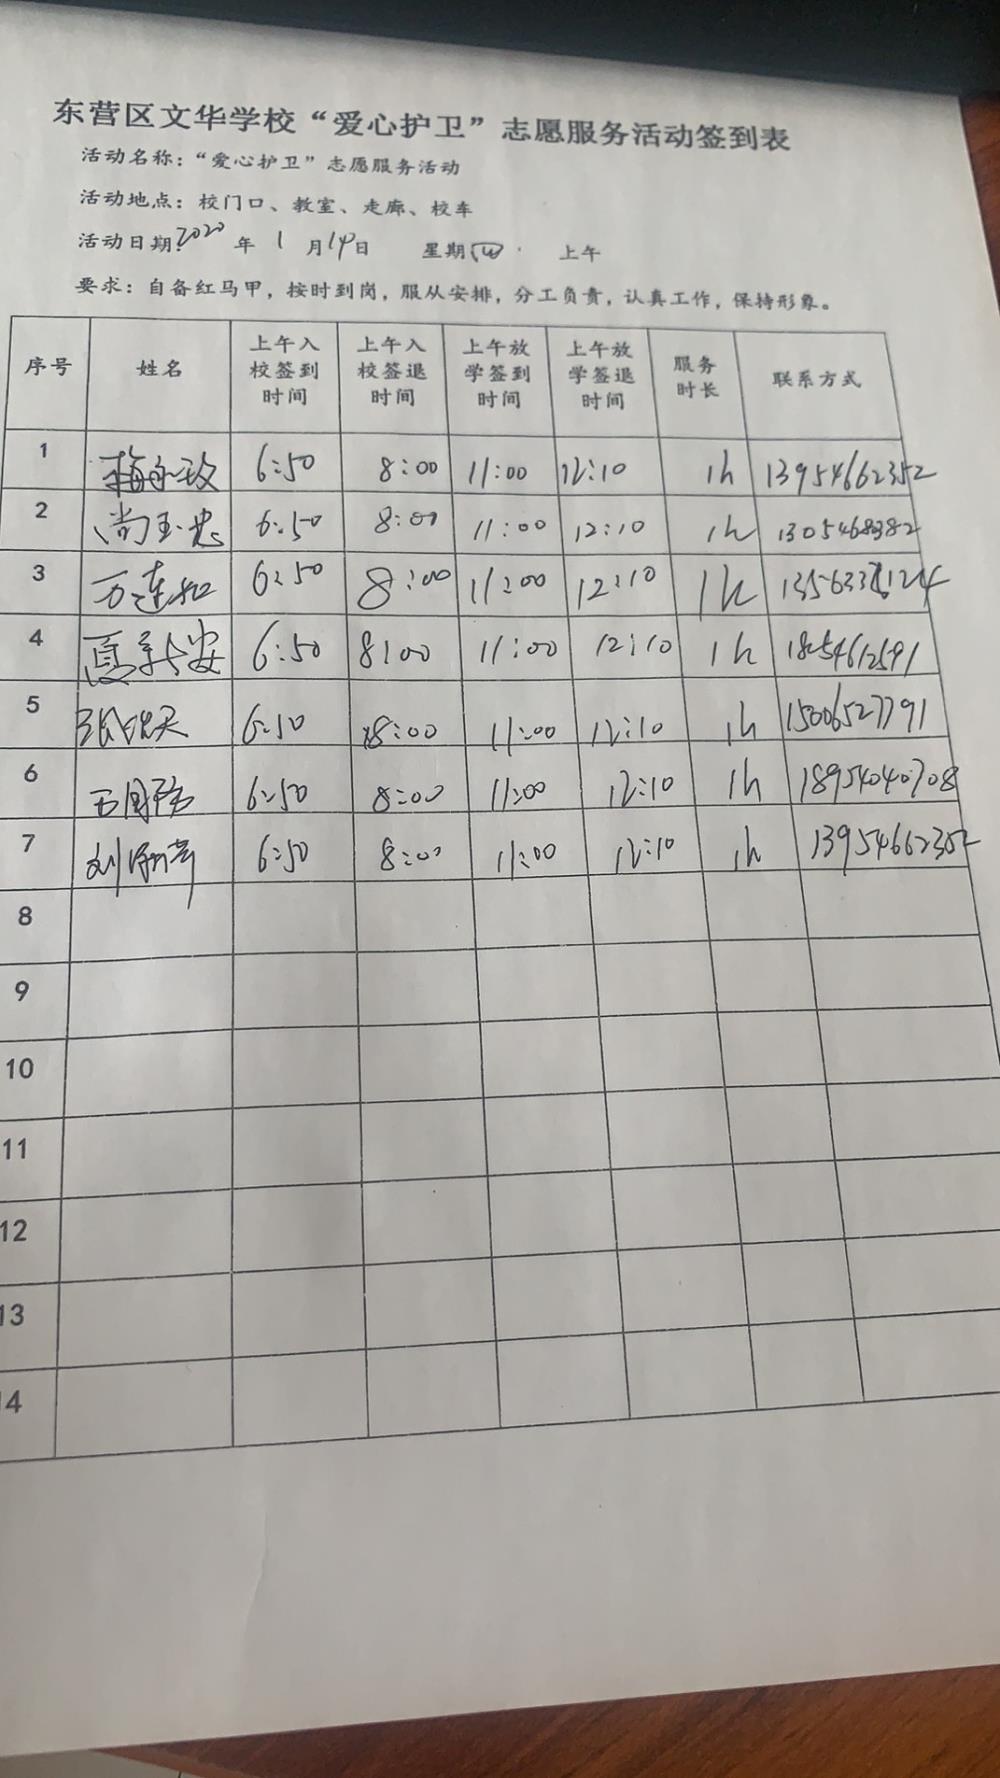 东营区文华学校“爱心护卫”志愿服务活动签到表
活动名称：“爱心护卫”志愿服务活动
活动地点：校门口、教室、走廊、校车
活动日期：2020年 1 月14日 星期四 上午
要求：自备红马甲，按时到岗，服从安排，分工负责，认真工作，保持形象。
序号 姓名 上午入校签到时间 上午入校签退时间 上午放学签到时间 上午放学签退时间 服务时长 联系方式
1 6:50 8:00 11:00 12:10 1h 13954662352
2 尚玉忠 6:50 8:00 11:00 12:10 1h 1305468382
3 万连和 6:50 8:00 11:00 12:10 1h
4 6:50 8:00 11:00 12:10 1h
5 6:50 8:00 11:00 12:10 1h 15006527791
6 6:50 8:00 11:00 12:10 1h 18954040708
7 6:50 8:00 11:00 12:10 1h 13954662352
8
9
10
11
12
13
14